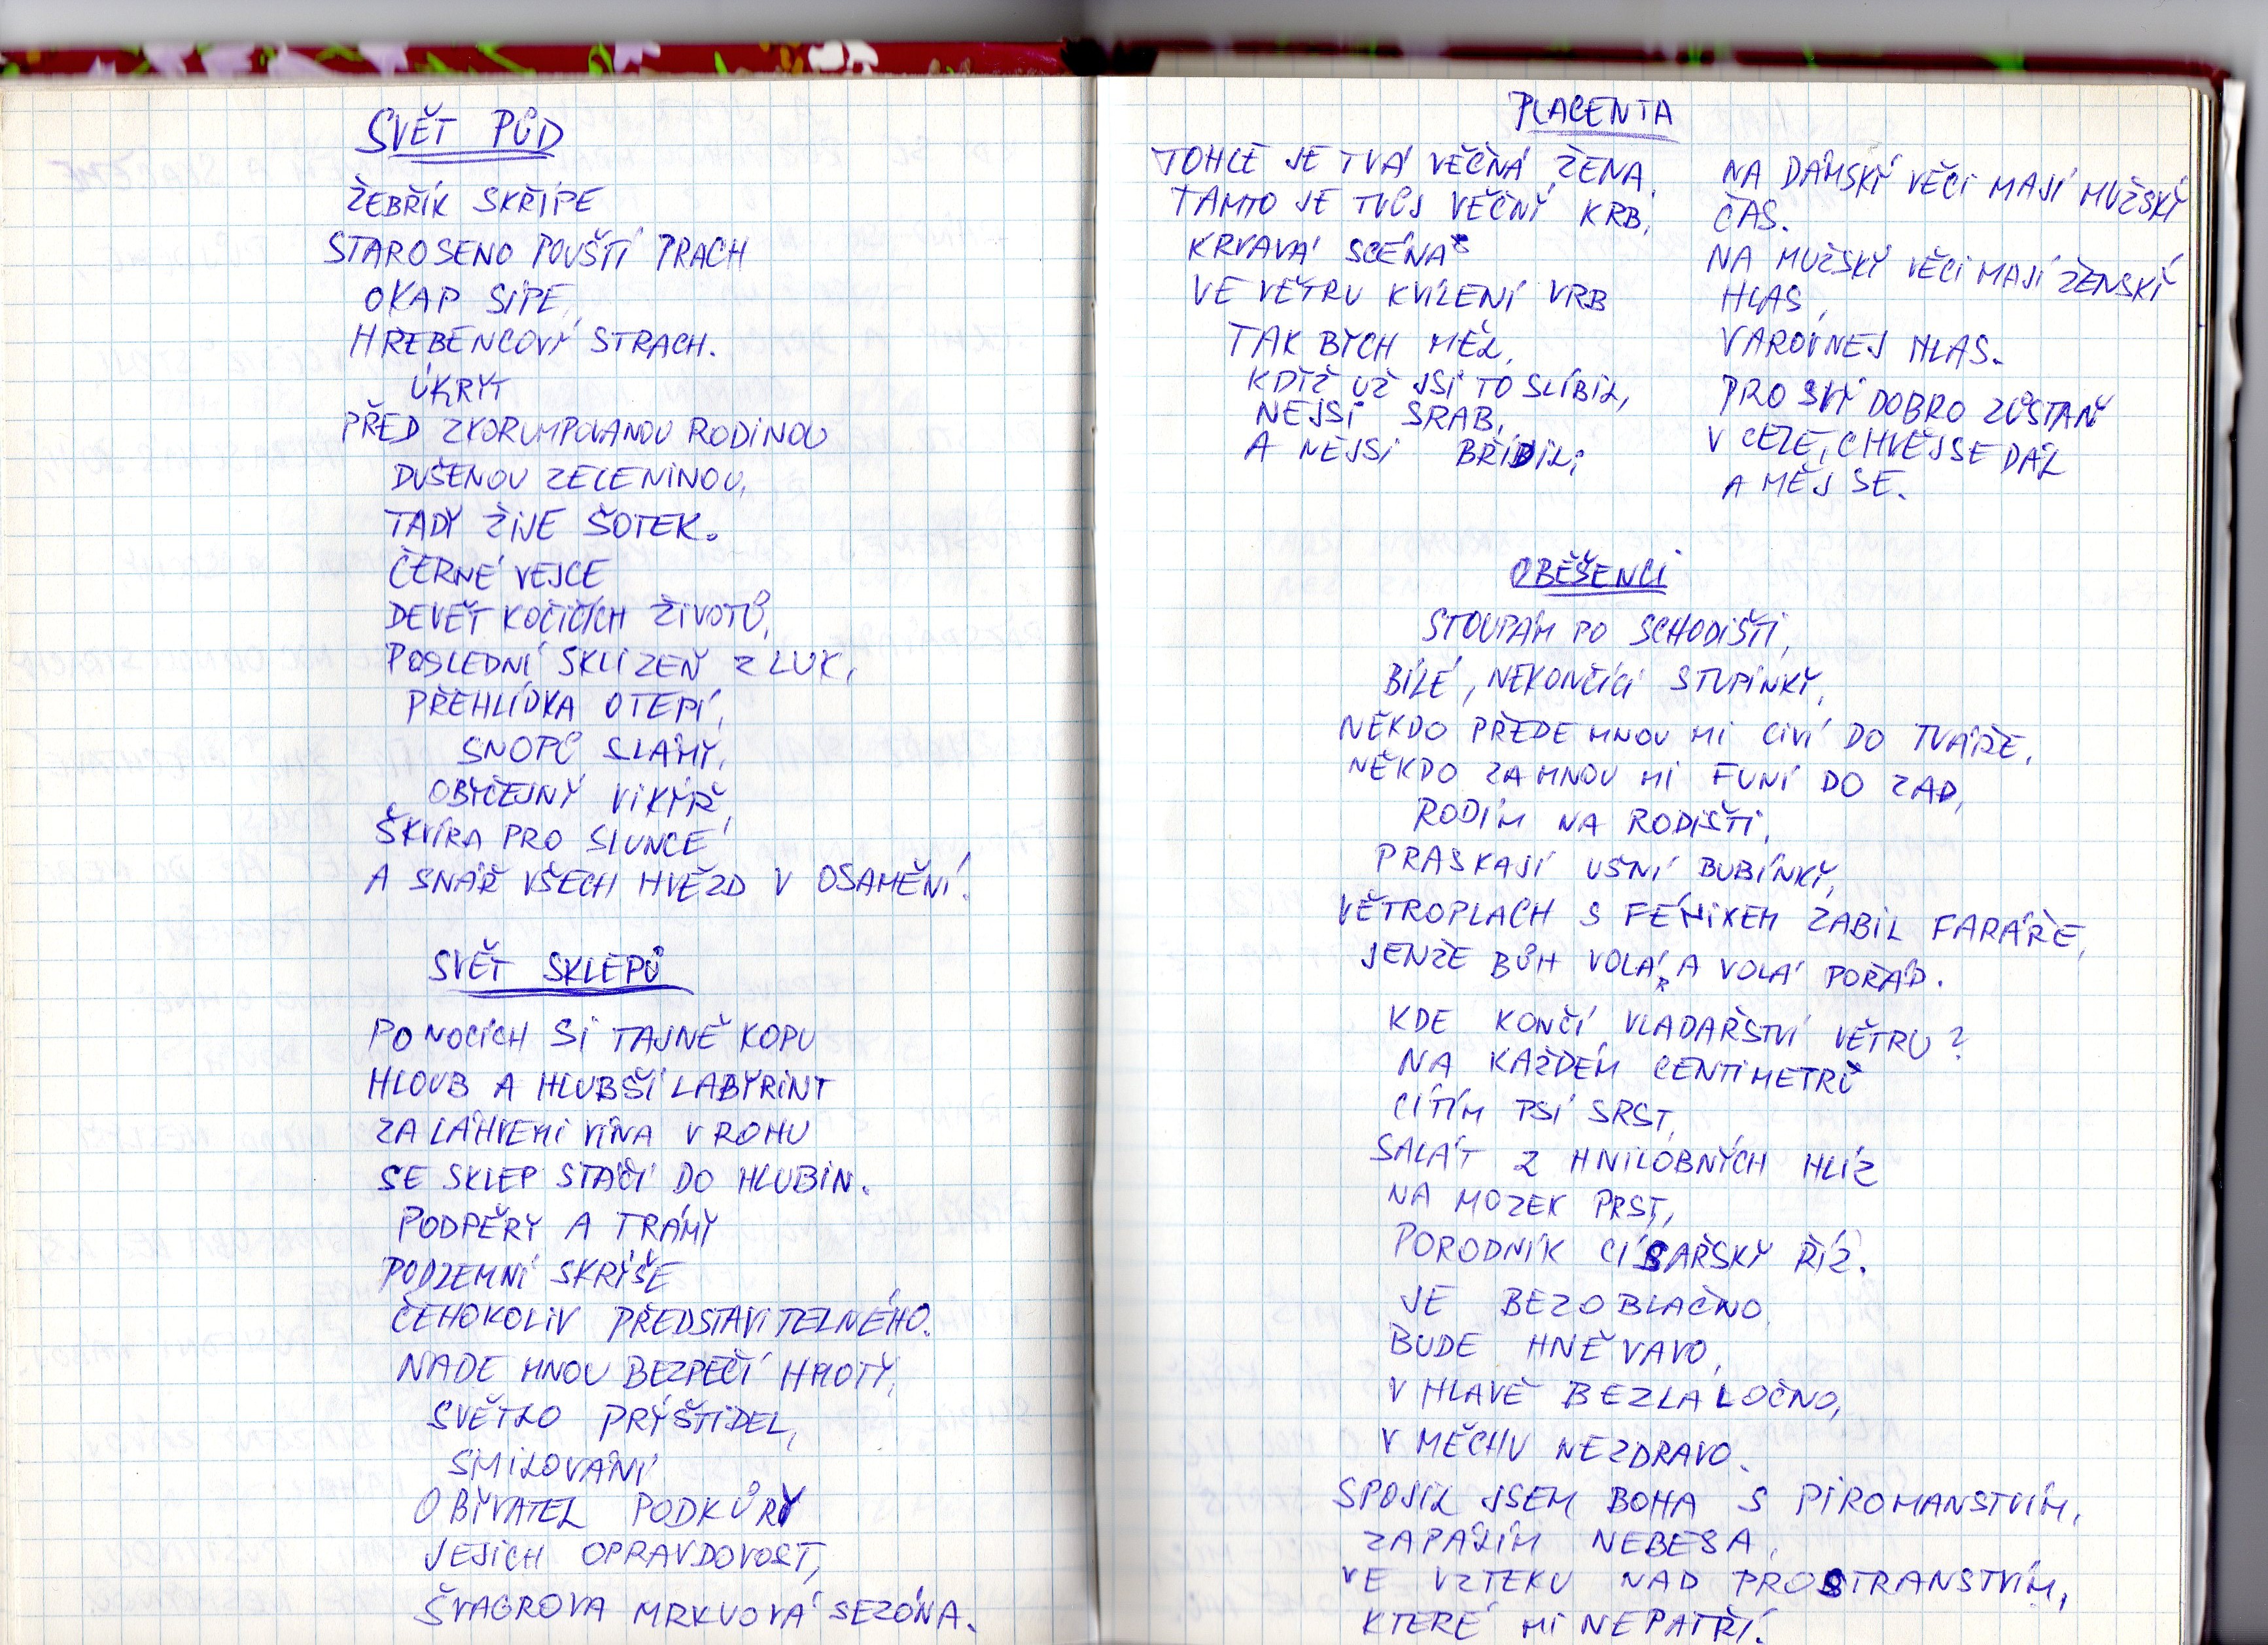 SVĚT PŮD
ŽEBŘÍK SKŘÍPE
STAROSENO POUŠTÍ PRACH
OKAP SÍPE,
HŘEBENCOVÝ STRACH.
ÚKRYT
PŘED ZKORUMPOVANOU RODINOU
DUŠENOU ZELENINOU,
TADY ŽIJE ŠOTEK.
ČERNÉ VEJCE
DEVĚT KOČIČÍCH ŽIVOTŮ,
POSLEDNÍ SKLIZEŇ Z LUK,
PŘEHLÍDKA OTEPÍ,
SNOPŮ SLÁMY,
OBYČEJNÝ VIKÝŘ,
ŠKVÍRA PRO SLUNCE
A SNÁŘ VŠECH HVĚZD V OSAMĚNÍ.
SVĚT SKLEPŮ
PO NOCÍCH SI TAJNĚ KOPU
HLOUB A HLUBŠÍ LABYRINT
ZA LÁHVEMI VÍNA V ROHU
SE SKLEP STÁČÍ DO HLUBIN.
PODPĚRY A TRÁMY
PODZEMNÍ SKRÝŠE
ČEHOKOLIV PŘEDSTAVITELNÉHO.
NADE MNOU BEZPEČÍ HMOTY,
SVĚTLO PRÝŠTIDEL,
SMILOVÁNÍ
OBYVATEL PODKŮRY
JEJICH OPRAVDOVOST,
ŠVAGROVA MRKVOVÁ SEZÓNA.
PLACENTA
TOHLE JE TVÁ VĚČNÁ ŽENA,
TAMTO JE TVŮJ VĚČNÝ KRB,
KRVAVÁ SCÉNA
VE VĚTRU KVÍLENÍ VRB
TAK BYCH MĚL,
KDYŽ UŽ JSI TO SLÍBIL,
NEJSI SRAB,
A NEJSI BŘÍDIL;
NA DÁMSKÝ VĚCI MAJÍ MUŽSKÝ
ČAS.
NA MUŽSKÝ VĚCI MAJÍ ŽENSKÝ
HLAS,
VAROVNEJ HLAS.
PRO SVÝ DOBRO ZŮSTAŇ
V CELE, CHVĚJ SE DÁL
A MĚJ SE.
OBĚŠENCI
STOUPÁM PO SCHODIŠTI,
BÍLÉ, NEKONČÍCÍ STUPÍNKY,
NĚKDO PŘEDE MNOU MI CIVÍ DO TVÁŘE,
NĚKDO ZA MNOU MI FUNÍ DO ZAD,
RODÍM NA RODIŠTI,
PRASKAJÍ UŠNÍ BUBÍNKY,
VĚTROPLACH S FÉNIXEM ZABIL FARÁŘE,
JENŽE BŮH VOLÁ, A VOLÁ POŘÁD.
KDE KONČÍ VLADAŘSTVÍ VĚTRU?
NA KAŽDÉM CENTIMETRŮ
CÍTÍM PSÍ SRST,
SALÁT Z HNILOBNÝCH HLÍZ
NA MOZEK PRST,
PORODNÍK CÍSAŘSKY ŘÍZ.
JE BEZOBLAČNO,
BUDE HNĚVAVO,
V HLAVĚ BEZLALOČNO,
V MĚCHU NEZDRAVO.
SPOJIL JSEM BOHA S PIROMANSTVÍM,
ZAPÁLÍM NEBESA,
VE VZTEKU NAD PROSTRANSTVÍM,
KTERÉ MI NEPATŘÍ.